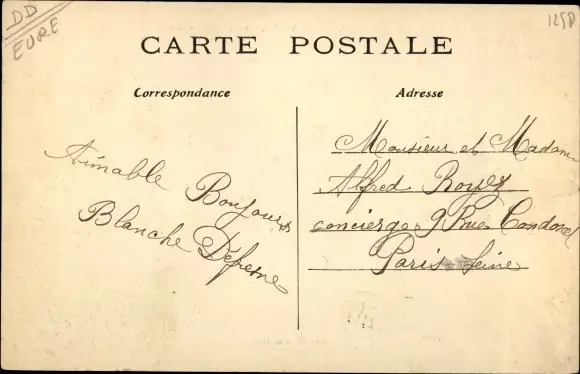 DD
EURE
1250
CARTE POSTALE
Correspondance
Adresse
Aimable Bonjours
Blanche Defresne
Monsieur et Madame
Alfred Boyez
concierge 9 Rue
Paris Seine